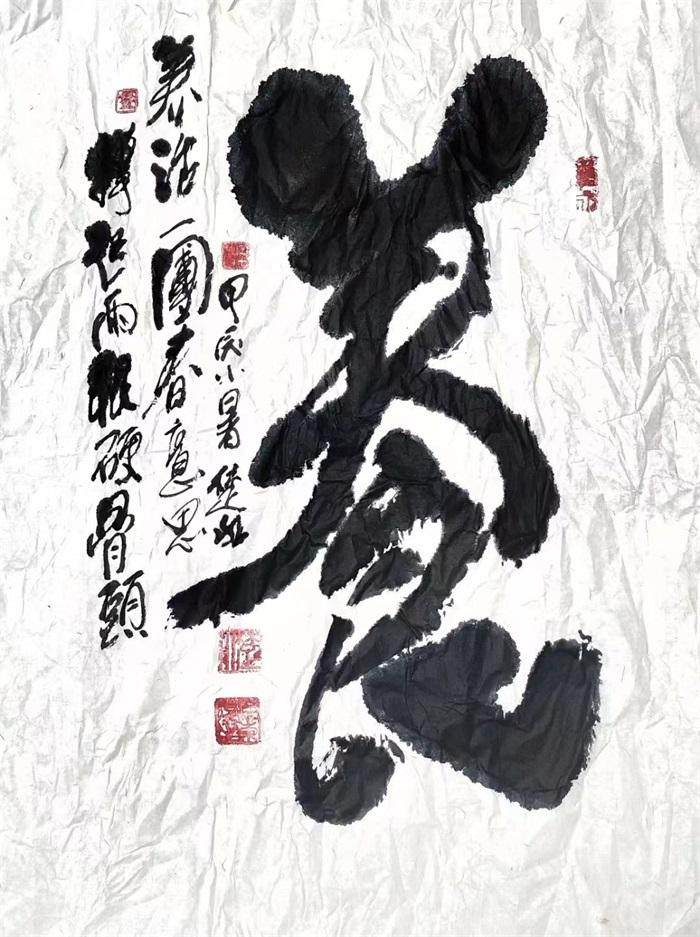 養
甲辰小暑 楚
养活一團春意思
撐起兩根硬骨頭